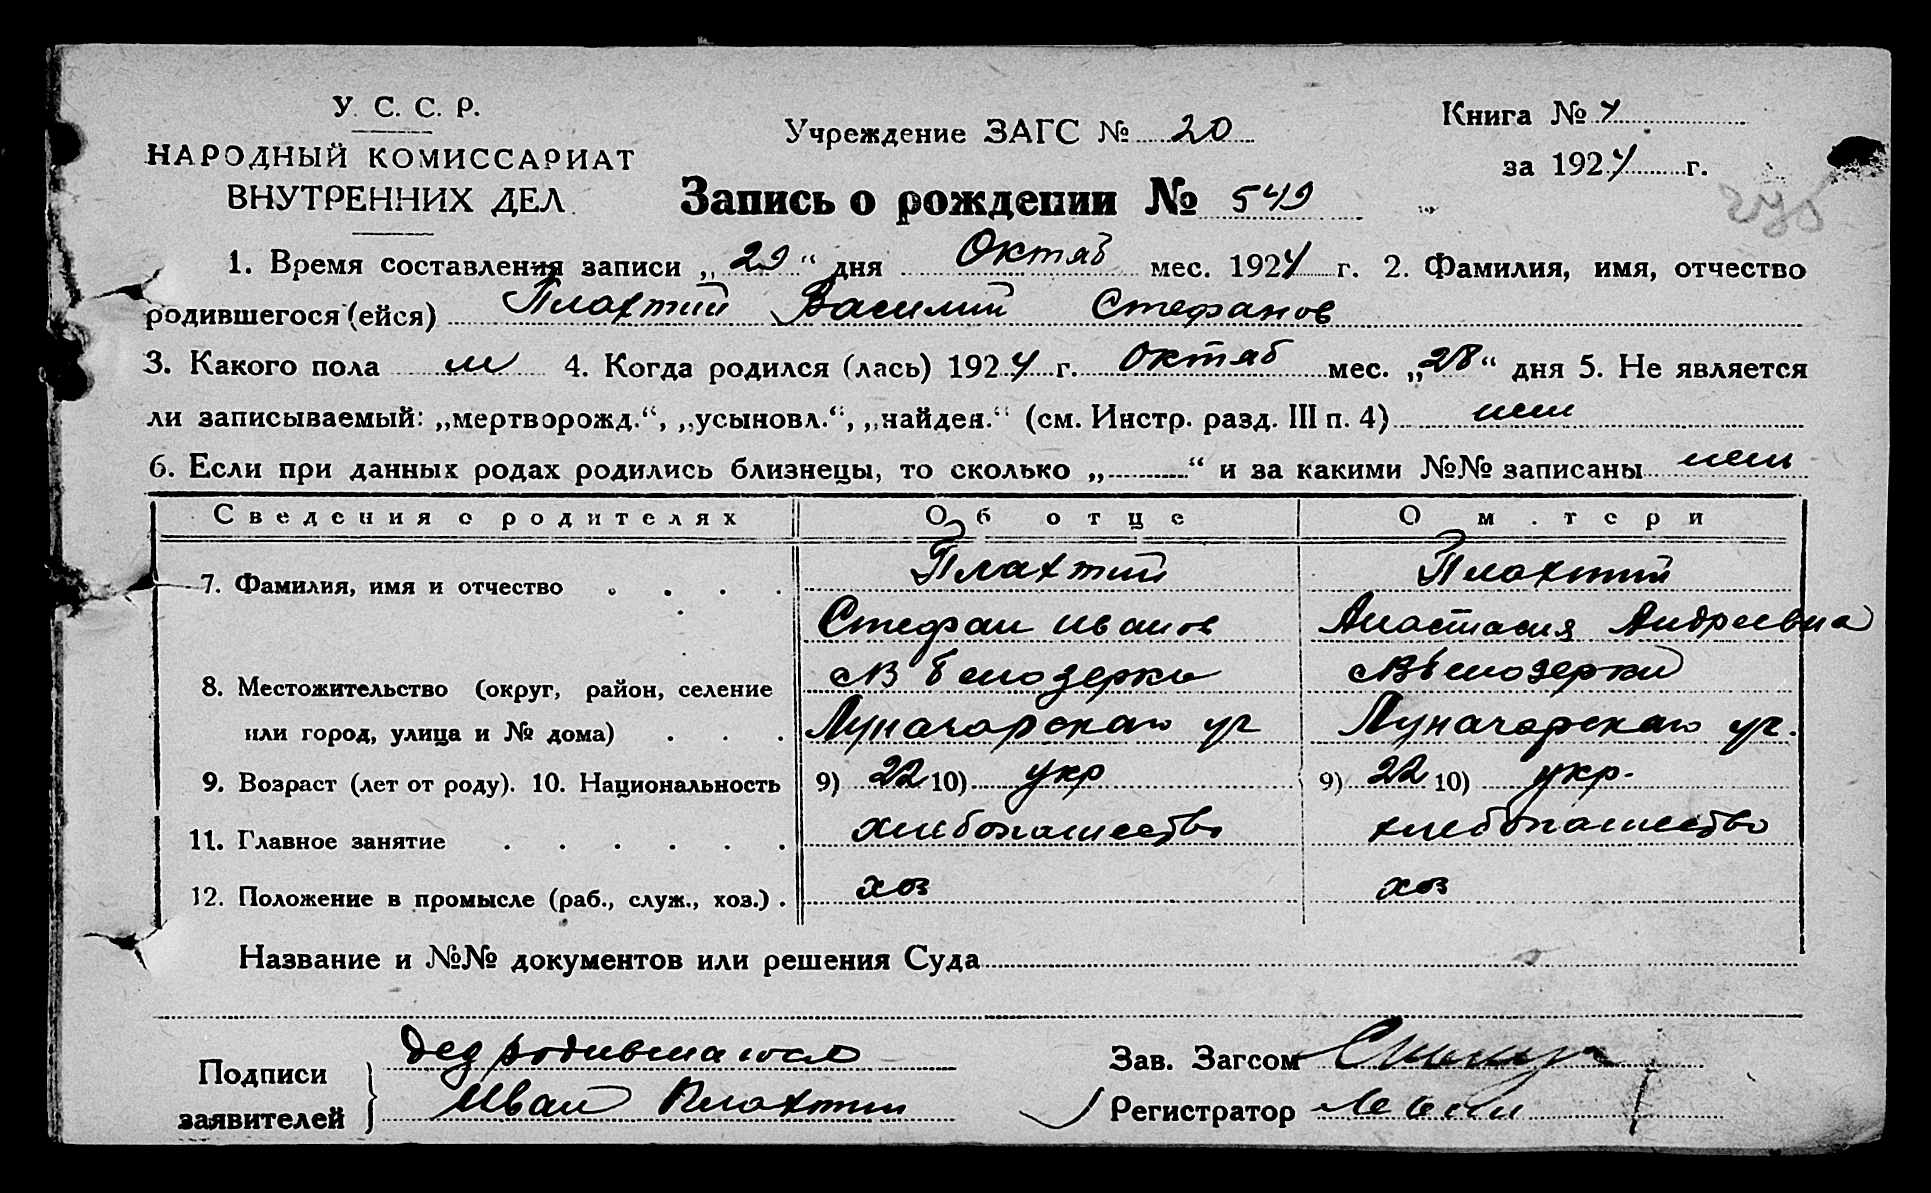 У. С. С. Р.
НАРОДНЫЙ КОМИССАРИАТ
ВНУТРЕННИХ ДЕЛ
Учреждение ЗАГС № 20
Книга № 4
за 1924 г.
Запись о рождении № 549
1. Время составления записи „29“ дня Октяб мес. 1924 г. 2. Фамилия, имя, отчество
родившегося (ейся) Плахтий Василий Стефанов
3. Какого пола м 4. Когда родился (лась) 1924 г. Октяб мес. „28“ дня 5. Не является
ли записываемый: „мертворожд.“, „усыновл.“, „найден.“ (см. Инстр. разд. III п. 4) нет
6. Если при данных родах родились близнецы, то сколько „ “ и за какими №№ записаны нет
Сведения о родителях Об отце О м.тери
7. Фамилия, имя и отчество Плахтий Плахтий
Стефан Иванов Анастасия Андреевна
8. Местожительство (округ, район, селение В Белозерка В Белозерки
или город, улица и № дома) Луначарская ул Луначарская ул.
9. Возраст (лет от роду). 10. Национальность 9) 22 10) укр 9) 22 10) укр.
11. Главное занятие хлебопашество хлебопашество
12. Положение в промысле (раб., служ., хоз.) хоз хоз
Название и №№ документов или решения Суда
Подписи заявителей
Дед родившагося
Иван Плахтий
Зав. Загсом
Регистратор